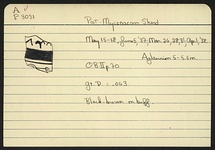 A
P 3031
Post-Mycenaean Sherd
May 15-18, June 5, '37, Mar. 26, 28, 31, Apr. 1, '38
Aglaurion S-S.Sm.
OB II p. 70
gr. D. : .063
Black-brown on buff.